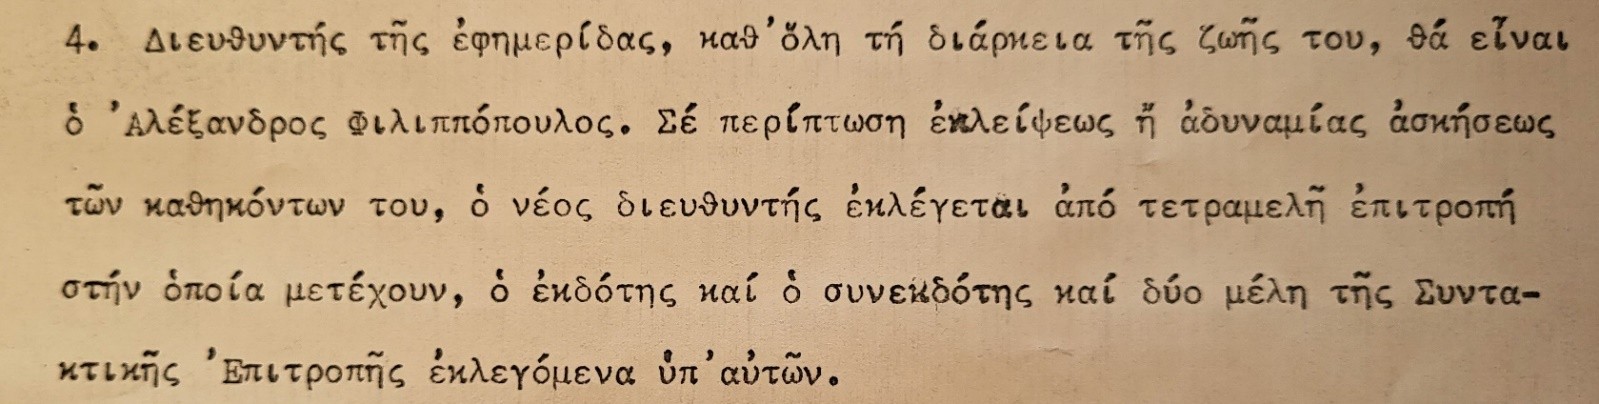 4. Διευθυντής τῆς ἐφημερίδας, καθ'ὅλη τή διάρκεια τῆς ζωῆς του, θά εἶναι
ὁ Ἀλέξανδρος Φιλιππόπουλος. Σέ περίπτωση ἐκλείψεως ἤ ἀδυναμίας ἀσκήσεως
τῶν καθηκόντων του, ὁ νέος διευθυντής ἐκλέγεται ἀπό τετραμελῆ ἐπιτροπή
στήν ὁποία μετέχουν, ὁ ἐκδότης καί ὁ συνεκδότης καί δύο μέλη τῆς Συντα-
κτικῆς Ἐπιτροπῆς ἐκλεγόμενα ὑπ'αὐτῶν.